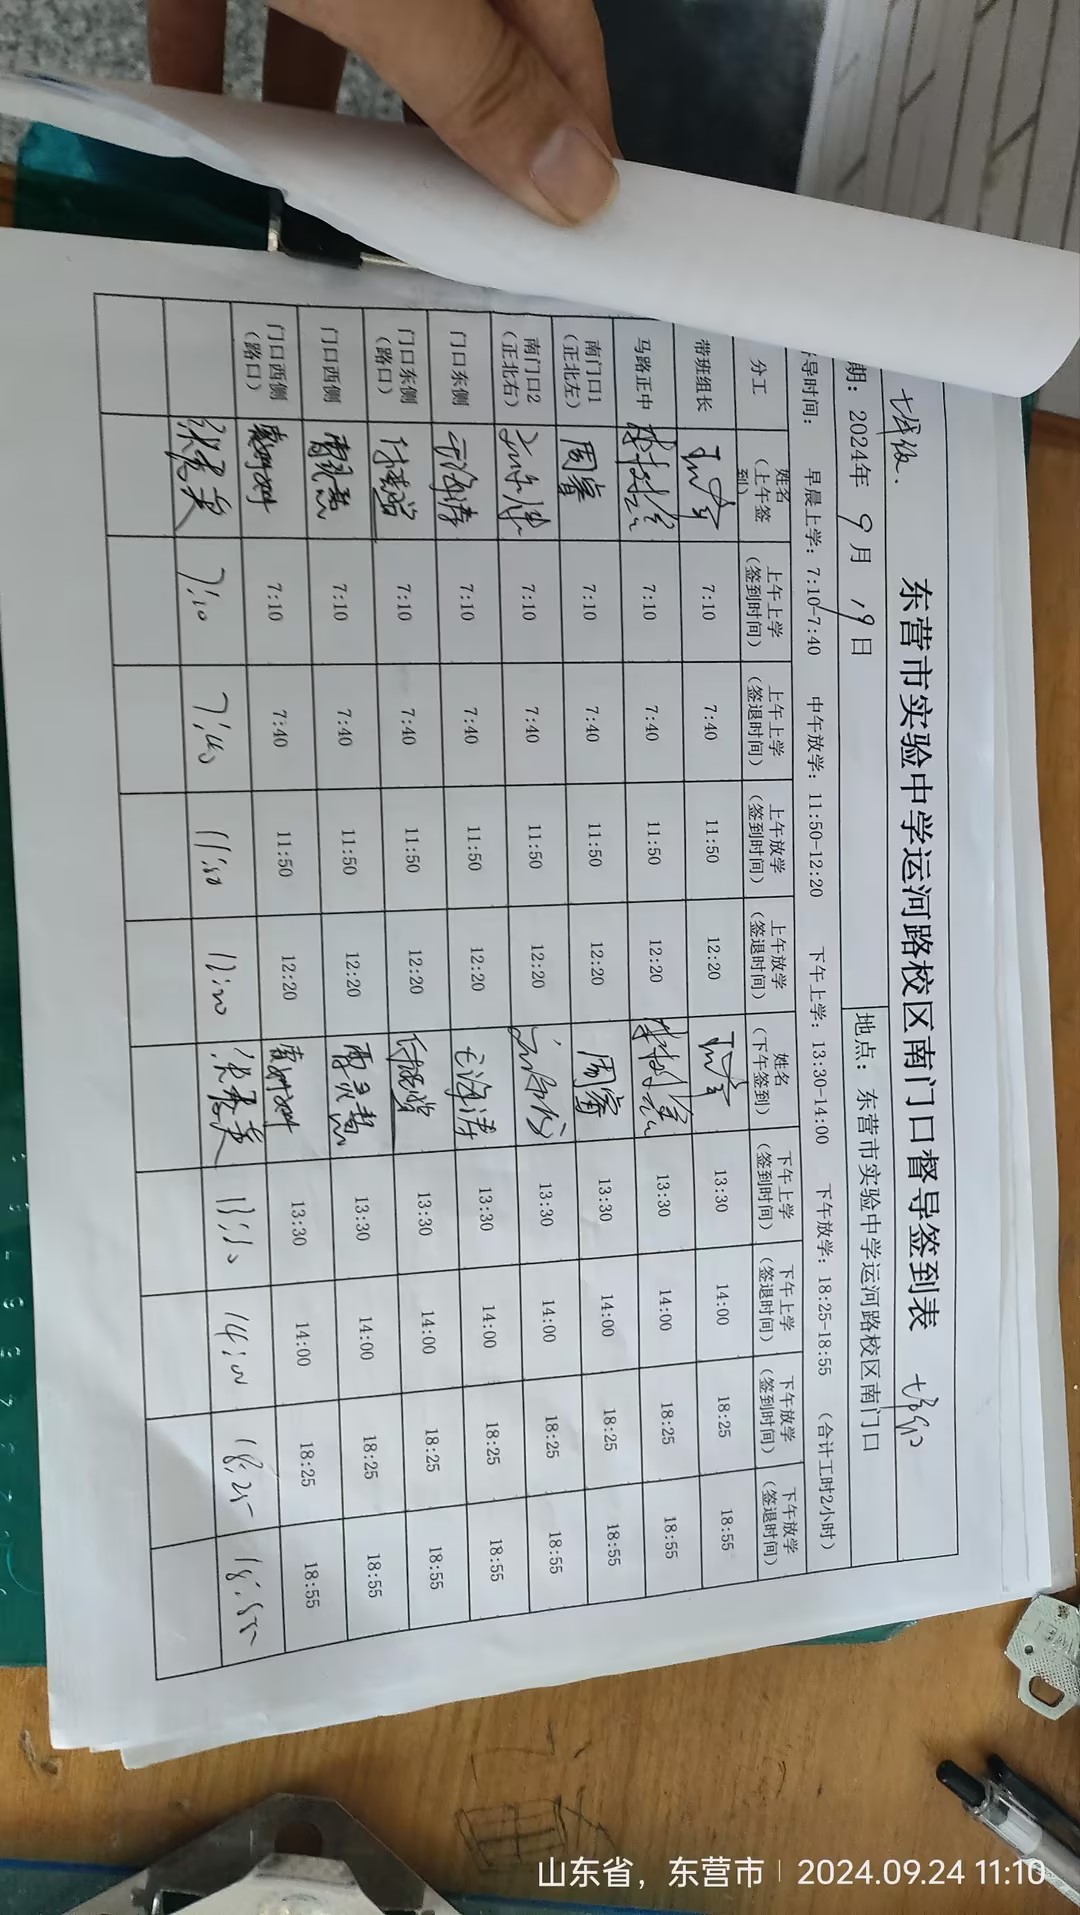 东营市实验中学运河路校区南门口督导签到表
期： 2024年 9月 19日 地点： 东营市实验中学运河路校区南门口
导时间： 早晨上学：7:10-7:40 中午放学：11:50-12:20 下午上学：13:30-14:00 下午放学：18:25-18:55 （合计工时2小时）
分工 姓名（上午签到） 上午上学（签到时间） 上午上学（签退时间） 上午放学（签到时间） 上午放学（签退时间） 姓名（下午签到） 下午上学（签到时间） 下午上学（签退时间） 下午放学（签到时间） 下午放学（签退时间）
带班组长 7:10 7:40 11:50 12:20 13:30 14:00 18:25 18:55
马路正中 7:10 7:40 11:50 12:20 13:30 14:00 18:25 18:55
南门口1（正北左） 周睿 7:10 7:40 11:50 12:20 周睿 13:30 14:00 18:25 18:55
南门口2（正北右） 7:10 7:40 11:50 12:20 13:30 14:00 18:25 18:55
门口东侧 7:10 7:40 11:50 12:20 13:30 14:00 18:25 18:55
门口东侧（路口） 7:10 7:40 11:50 12:20 13:30 14:00 18:25 18:55
门口西侧 7:10 7:40 11:50 12:20 13:30 14:00 18:25 18:55
门口西侧（路口） 7:10 7:40 11:50 12:20 13:30 14:00 18:25 18:55
7:10 7:40 11:50 12:20 14:00 18:25 18:55
山东省，东营市 2024.09.24 11:10